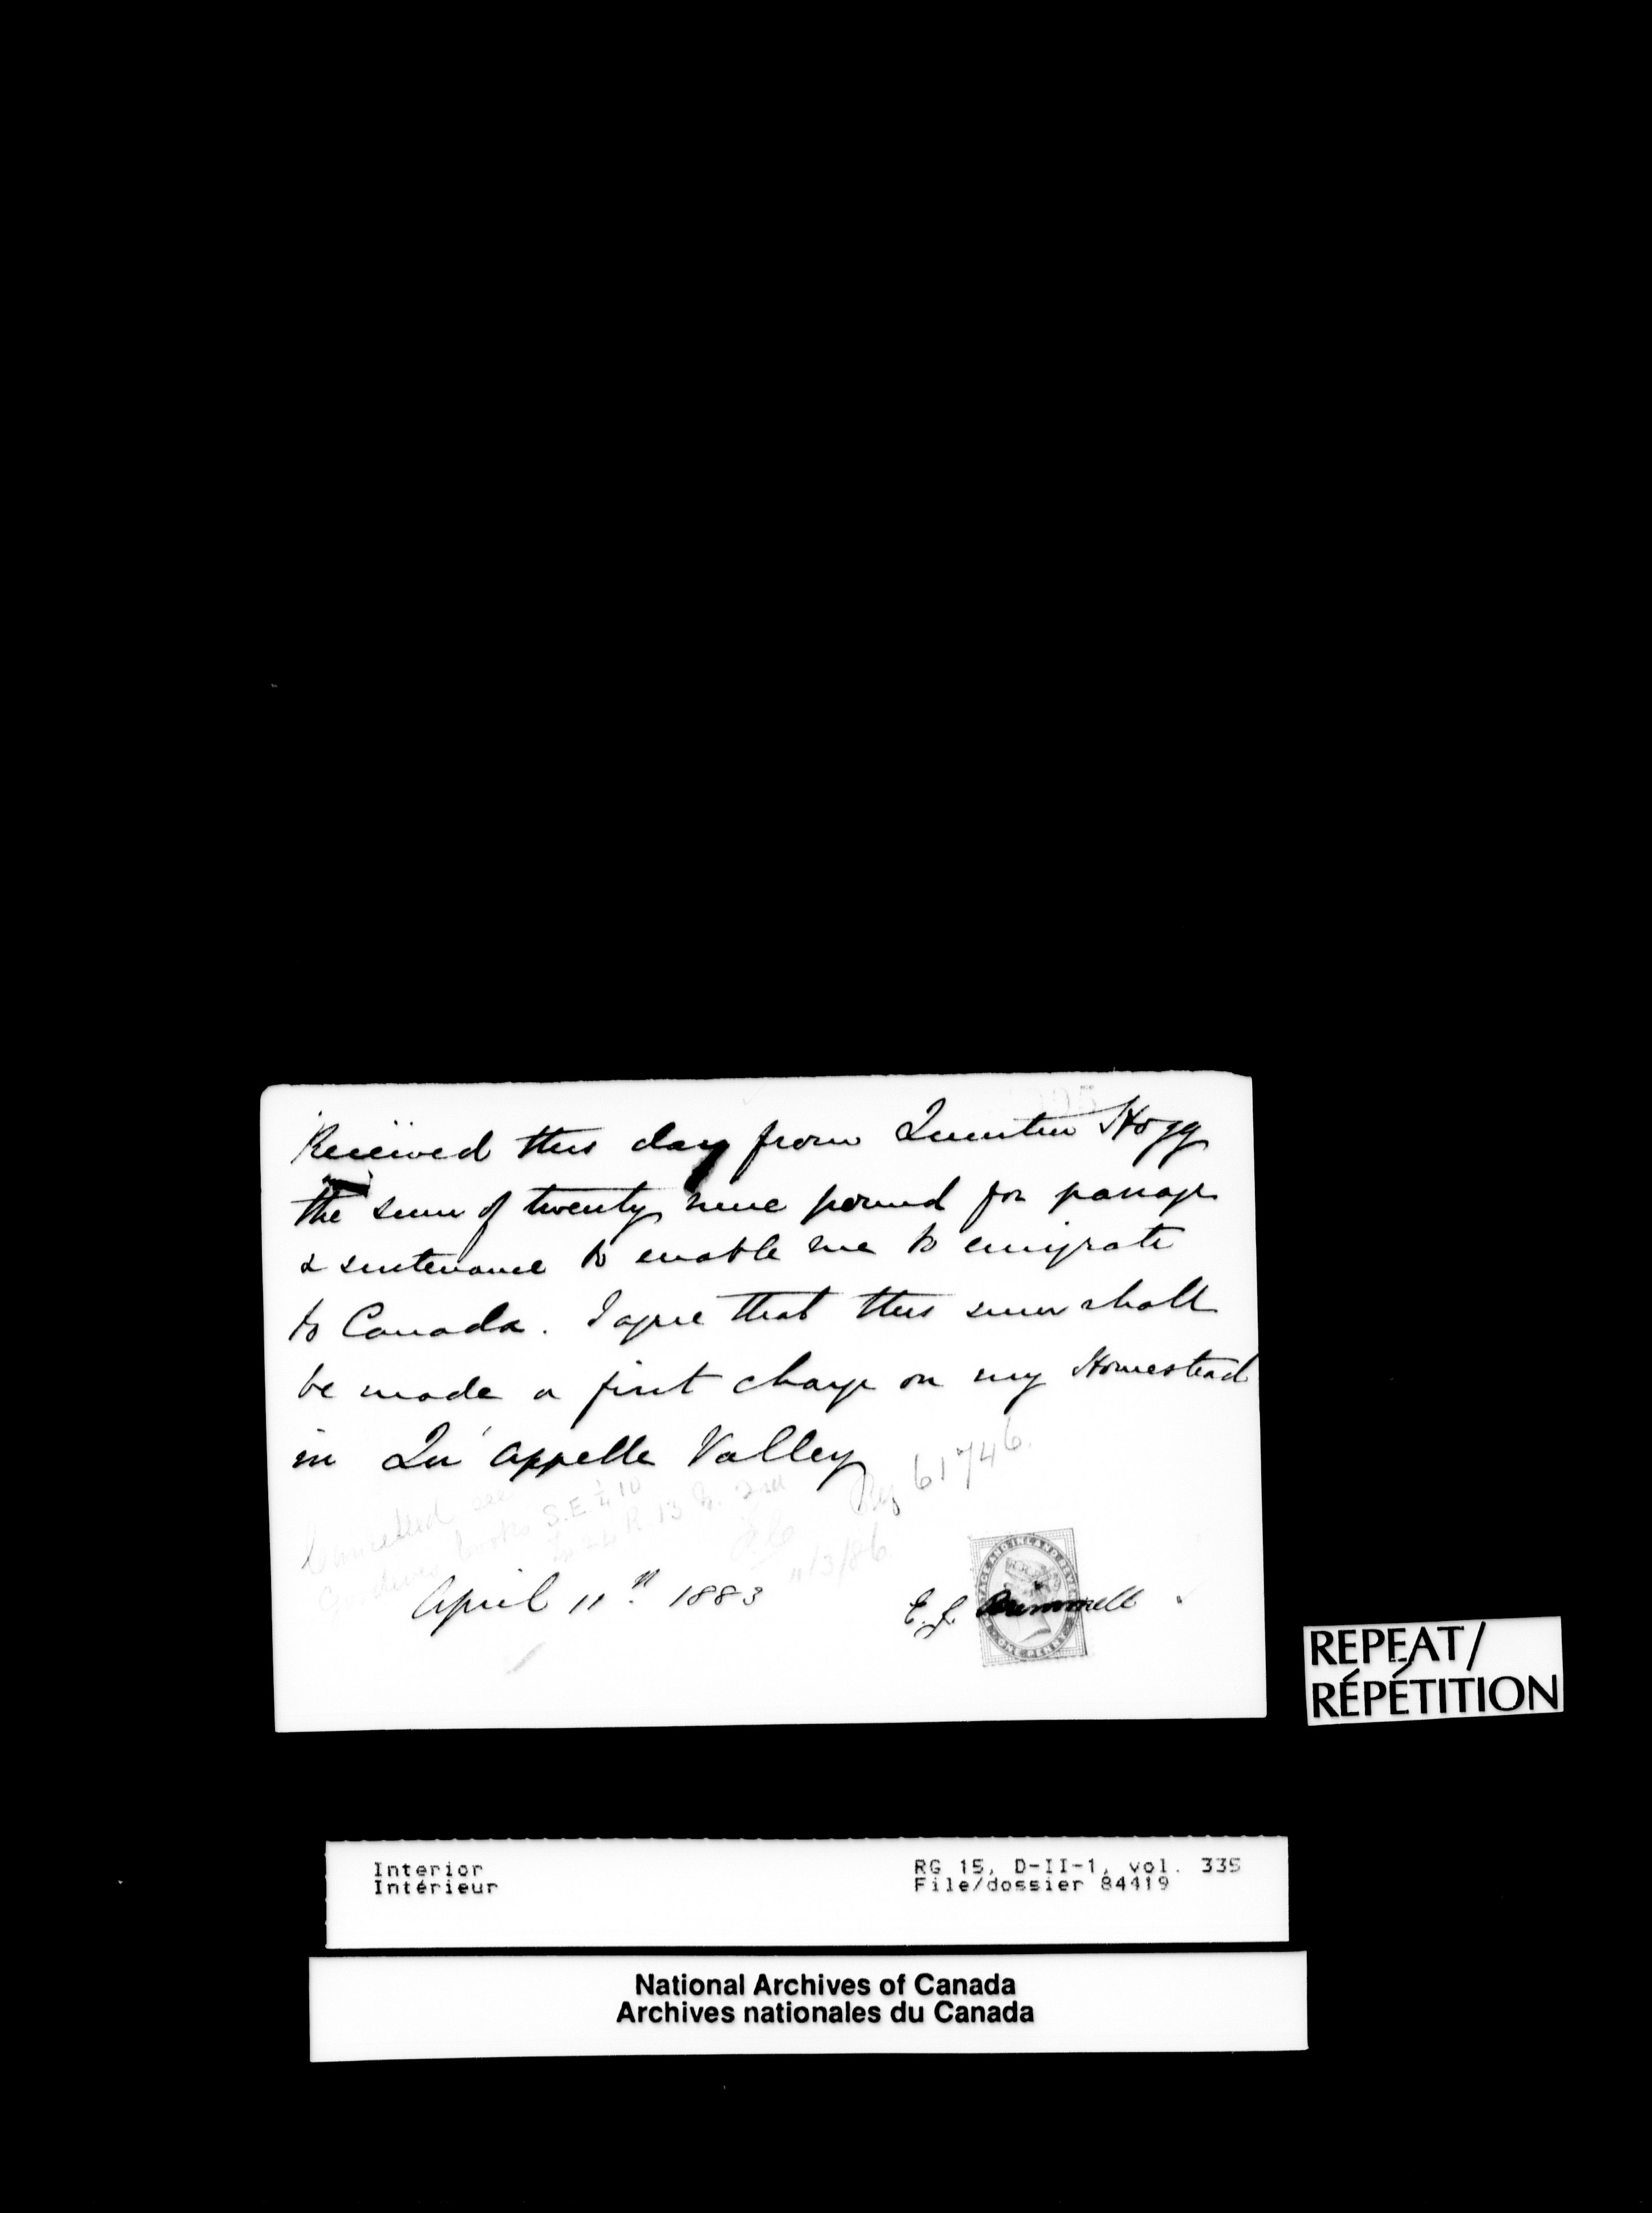 Received this day from Quintin Hogg
the sum of twenty nine pound for passage
& sustenance to enable me to emigrate
to Canada. I agree that this sum shall
be made a first charge on my Homestead
in Qu'appelle Valley
Reg 61746.
Cancelled see
books S.E ¼ 10
R. 13 2nd
11/3/86
April 11th 1883
E. J.
POSTAGE AND INLAND REVENUE
ONE PENNY
REPEAT/
RÉPÉTITION
Interior
Intérieur
RG 15, D-II-1, vol. 335
File/dossier 84419
National Archives of Canada
Archives nationales du Canada